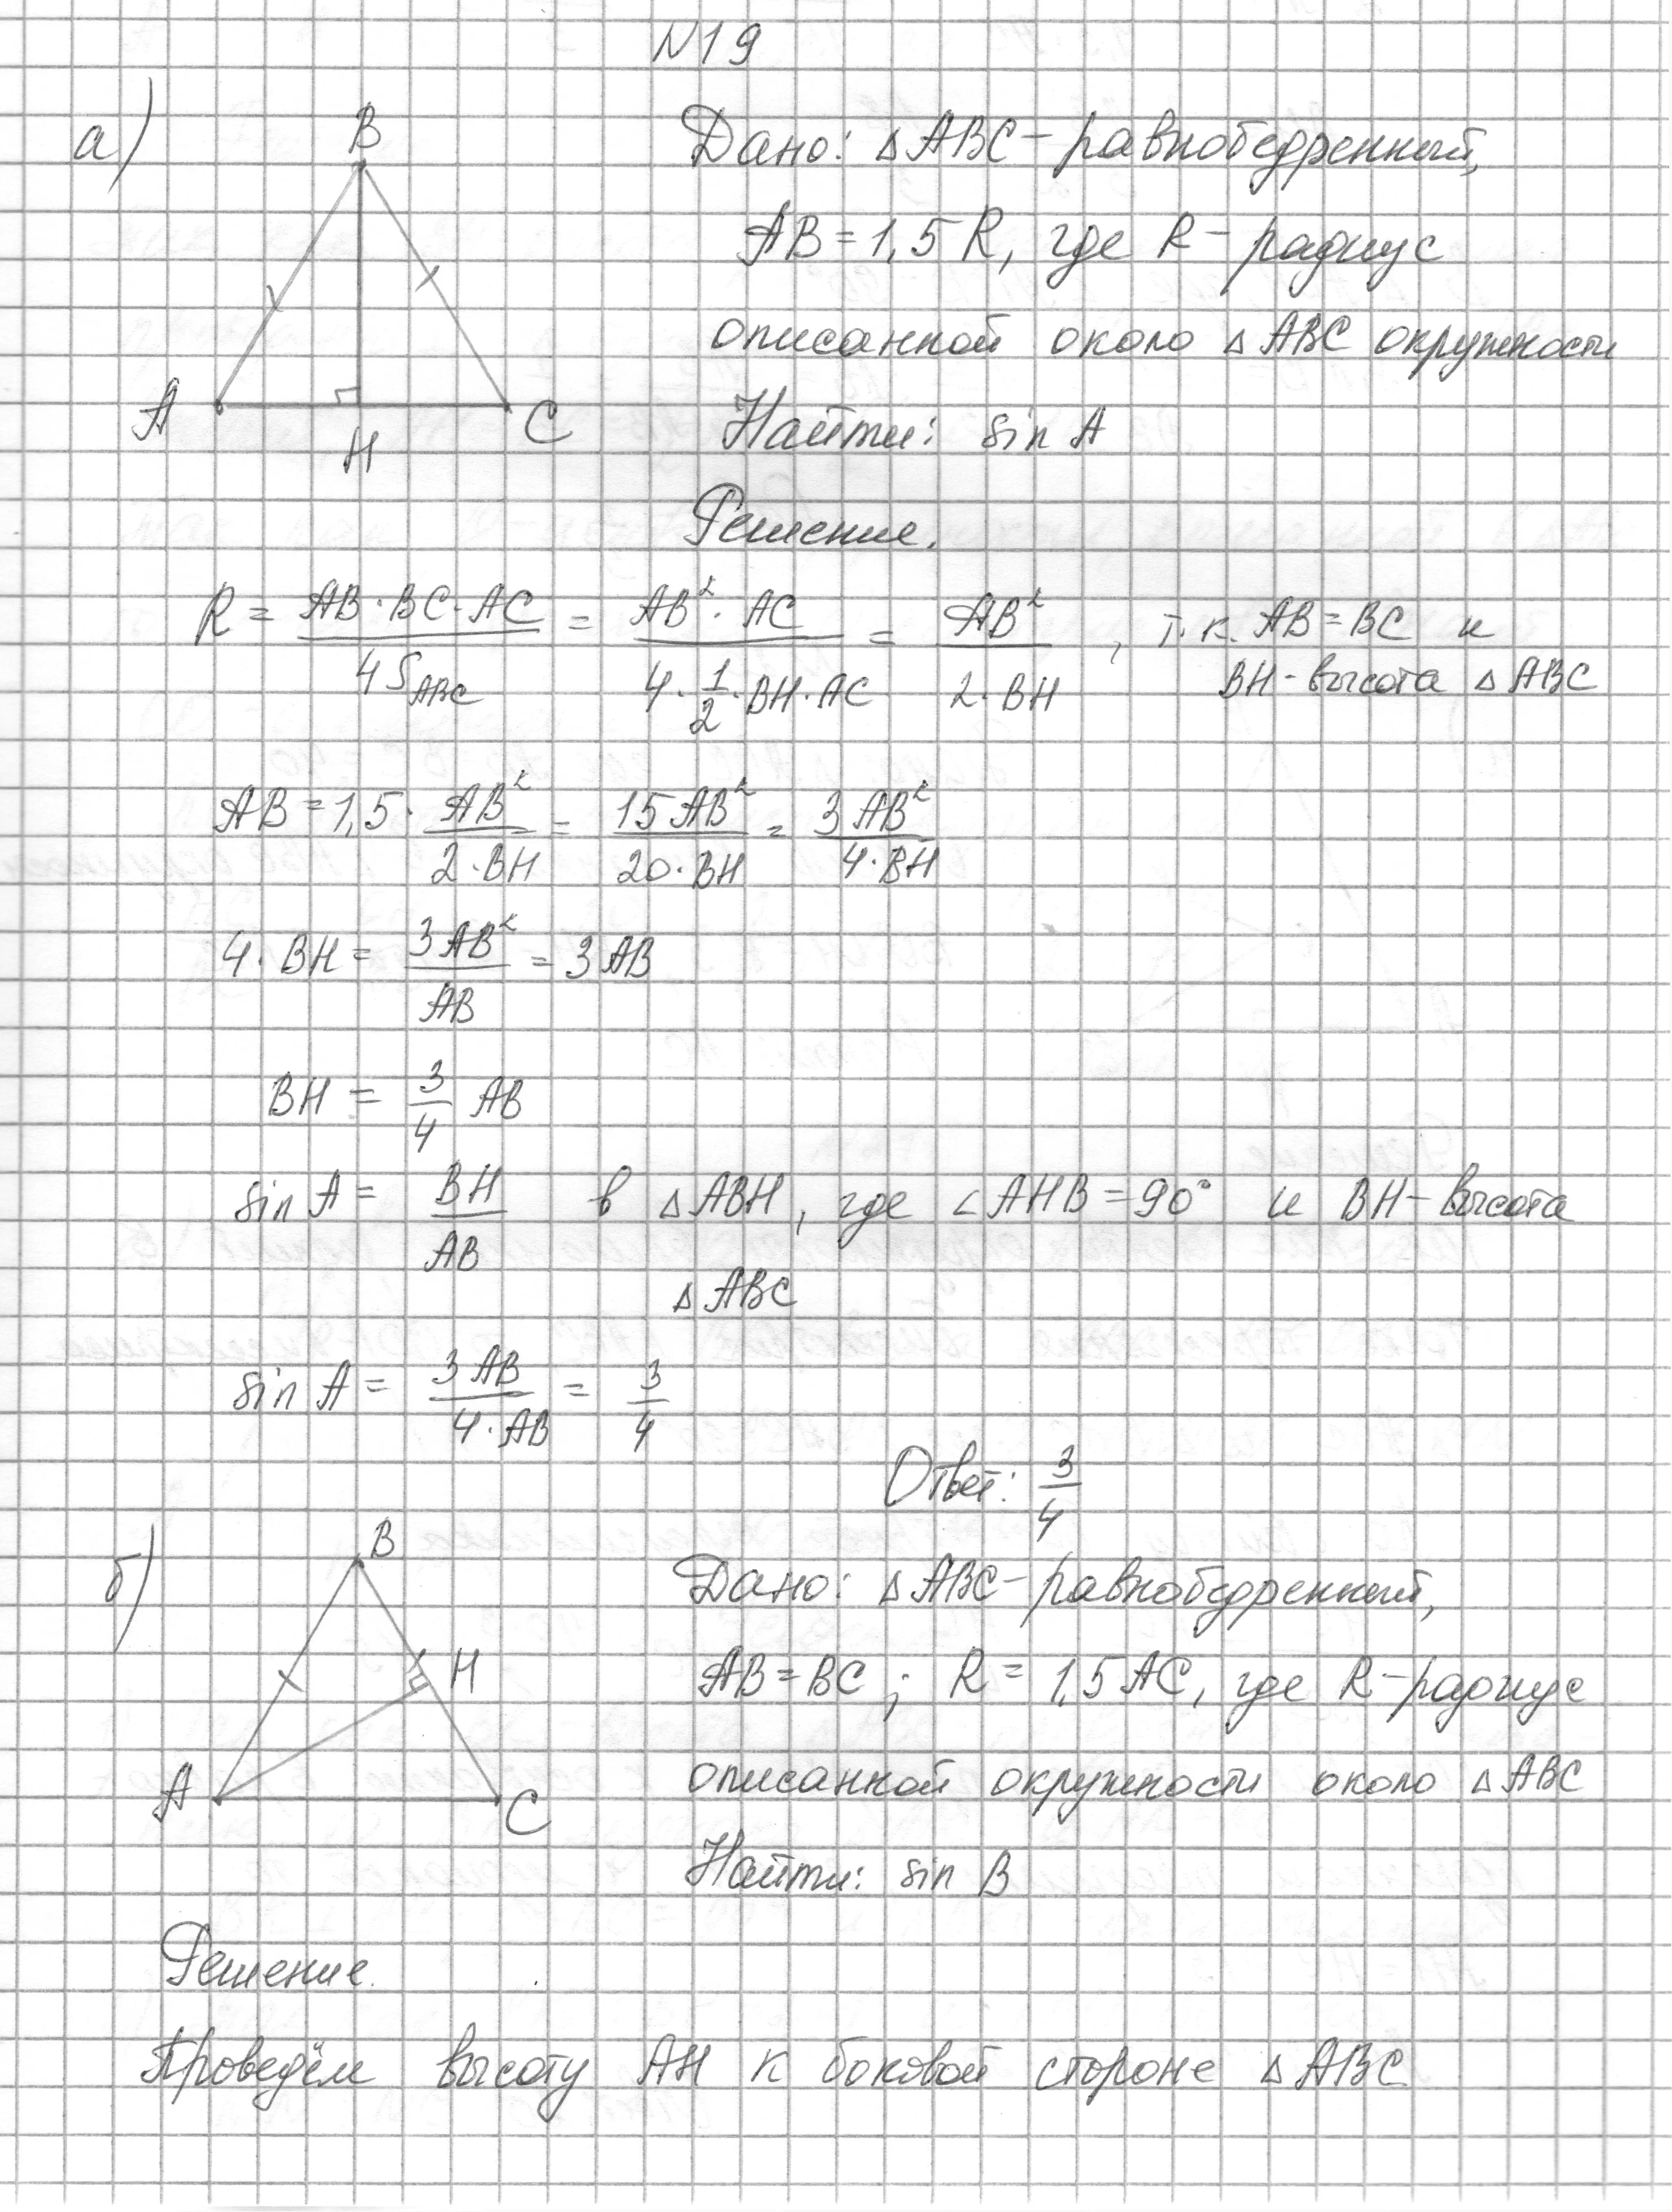 N19
а)
B
A
H
C
Дано: △ABC - равнобедренный,
AB = 1,5 R, где R - радиус
описанной около △ABC окружности
Найти: sin A
Решение.
R = AB·BC·AC / 4S_ABC = AB²·AC / 4·1/2·BH·AC = AB² / 2·BH , т.к. AB = BC и
BH - высота △ABC
AB = 1,5 · AB² / 2·BH = 15AB² / 20·BH = 3AB² / 4·BH
4·BH = 3AB² / AB = 3AB
BH = 3/4 AB
sin A = BH / AB в △ABH, где ∠AHB = 90° и BH - высота
△ABC
sin A = 3AB / 4·AB = 3/4
Ответ: 3/4
б)
B
H
A
C
Дано: △ABC - равнобедренный,
AB = BC ; R = 1,5 AC, где R - радиус
описанной окружности около △ABC
Найти: sin B
Решение.
Проведём высоту AH к боковой стороне △ABC